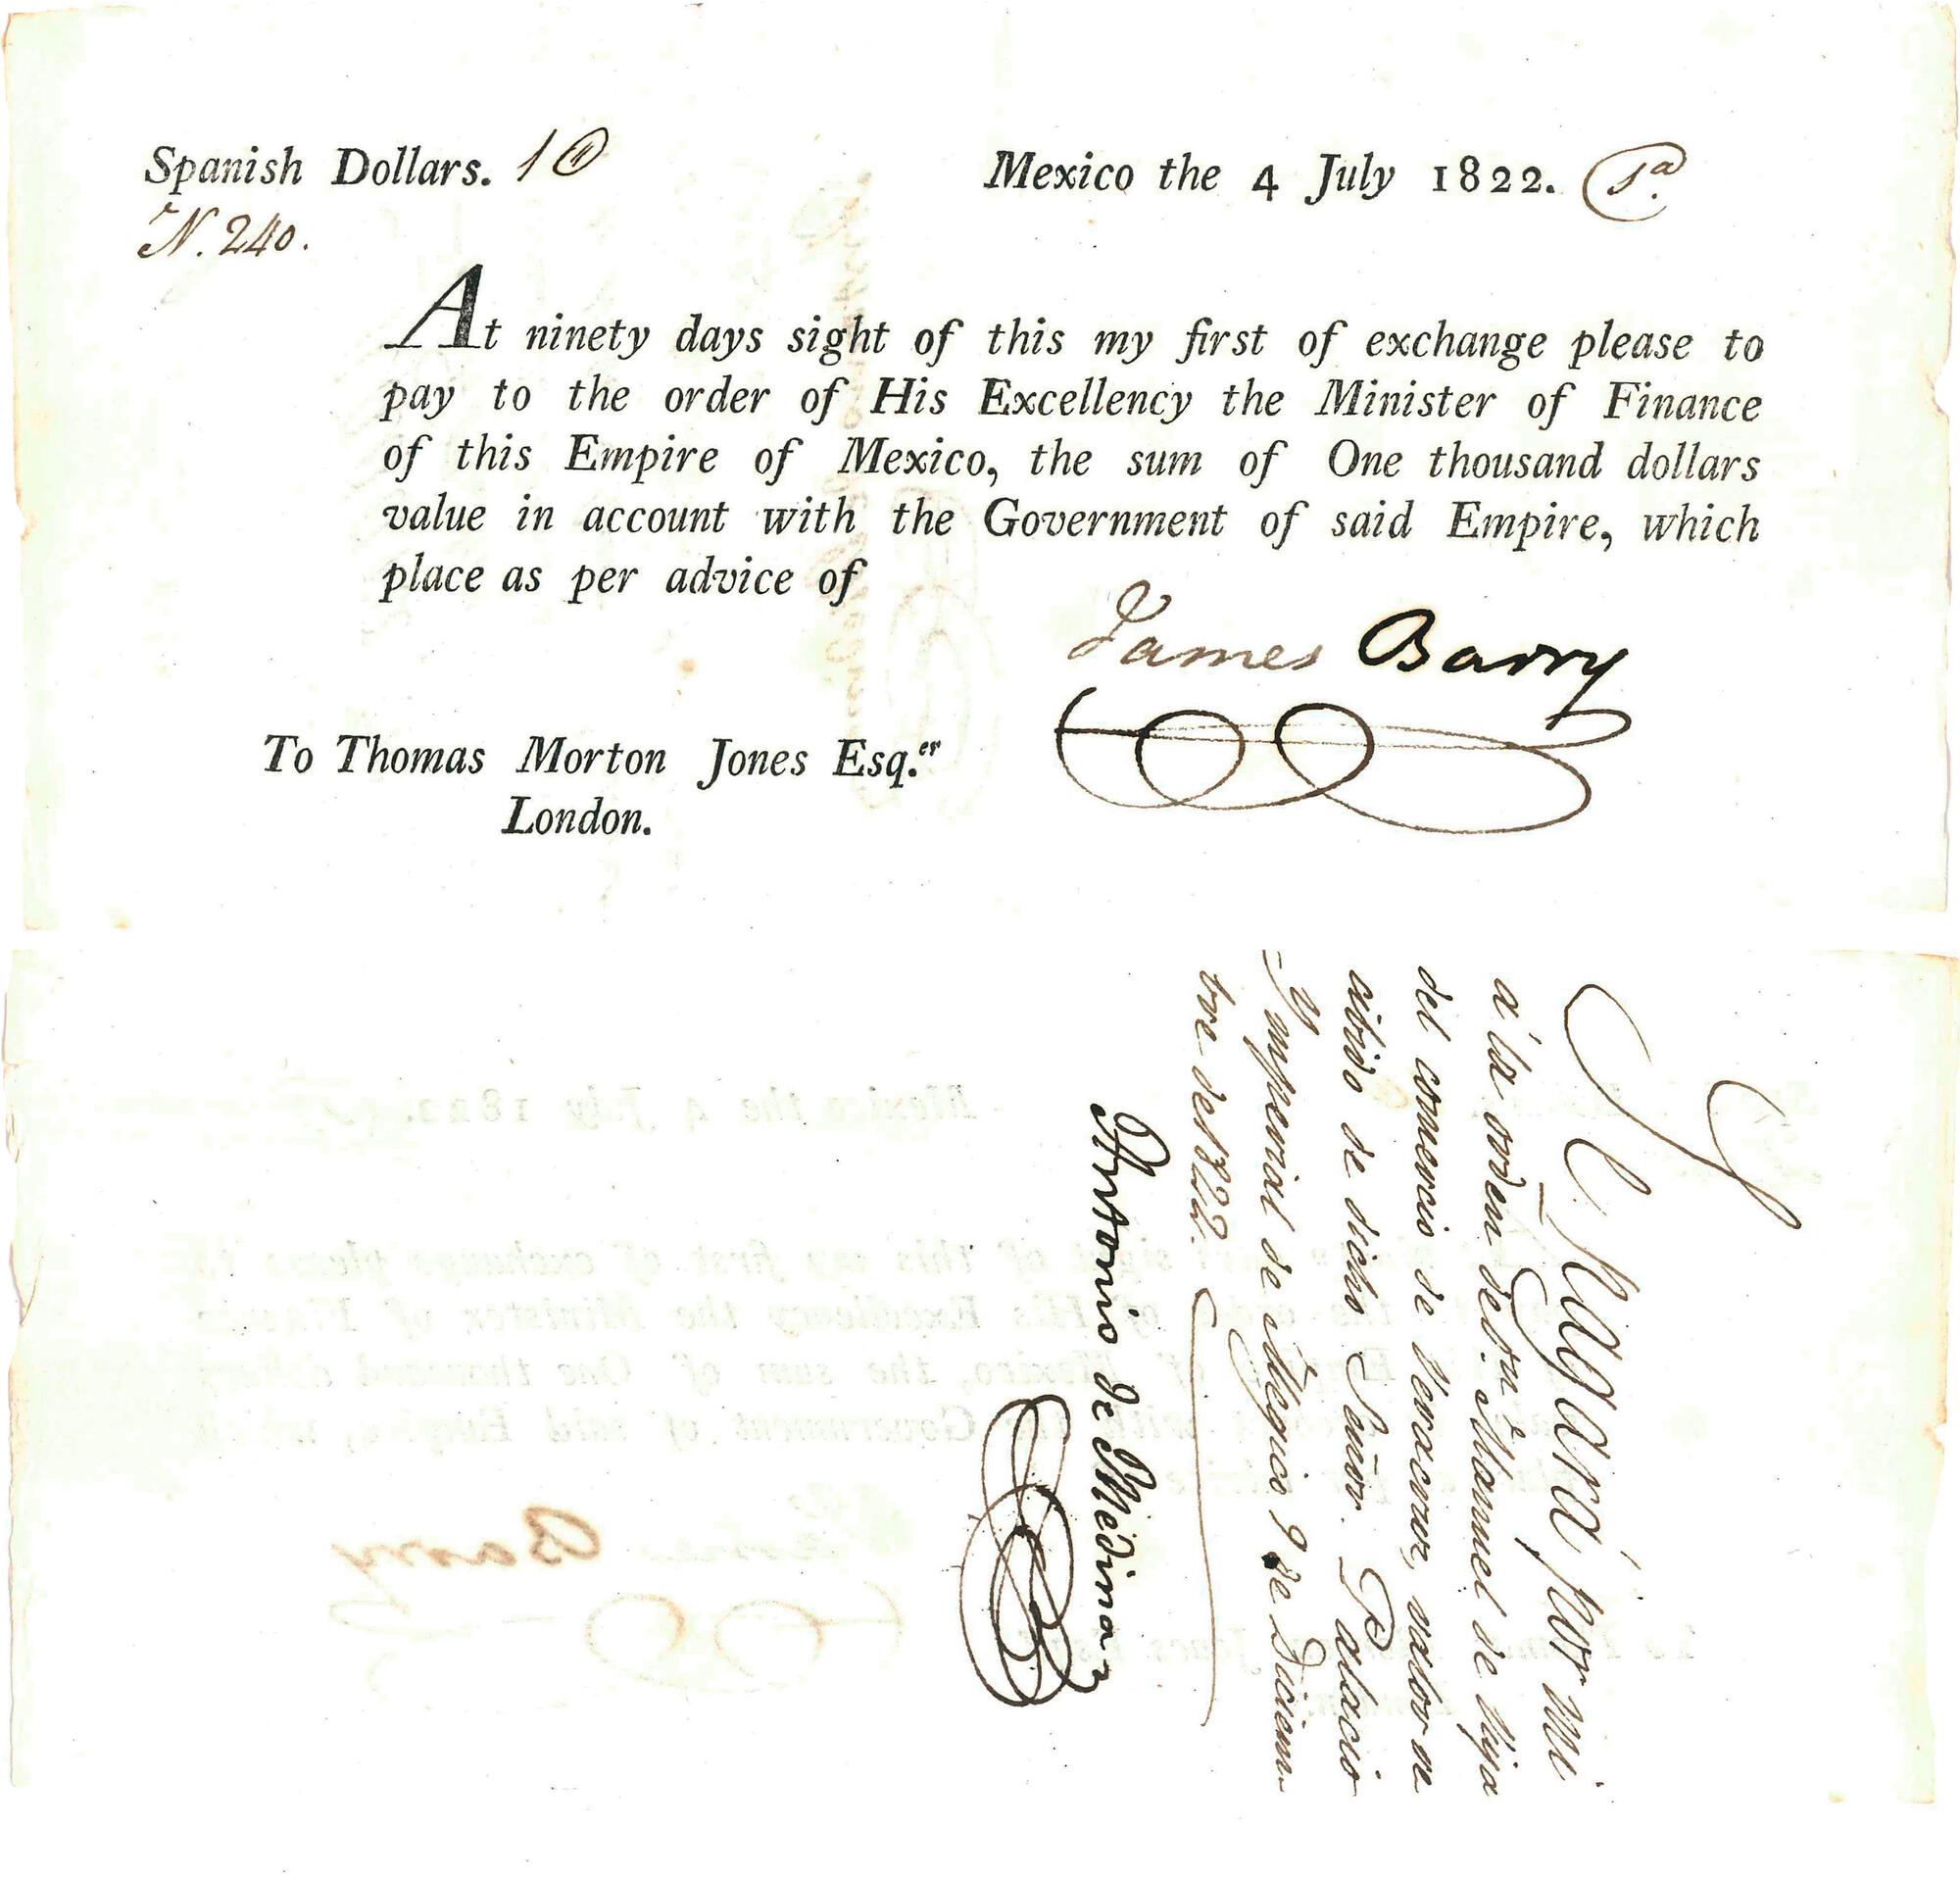 Spanish Dollars. 10
Mexico the 4 July 1822. 1ª.
N. 240.
At ninety days sight of this my first of exchange please to
pay to the order of His Excellency the Minister of Finance
of this Empire of Mexico, the sum of One thousand dollars
value in account with the Government of said Empire, which
place as per advice of
James Barry
To Thomas Morton Jones Esq.er
London.
Pagará por mi
a la orden de Dn. Manuel de Viya
del comercio de Veracruz, valor re
cibido de dicho Señor. Palacio
Ymperial de Megico 9 de Diciem-
bre de 1822.
Antonio de Medina